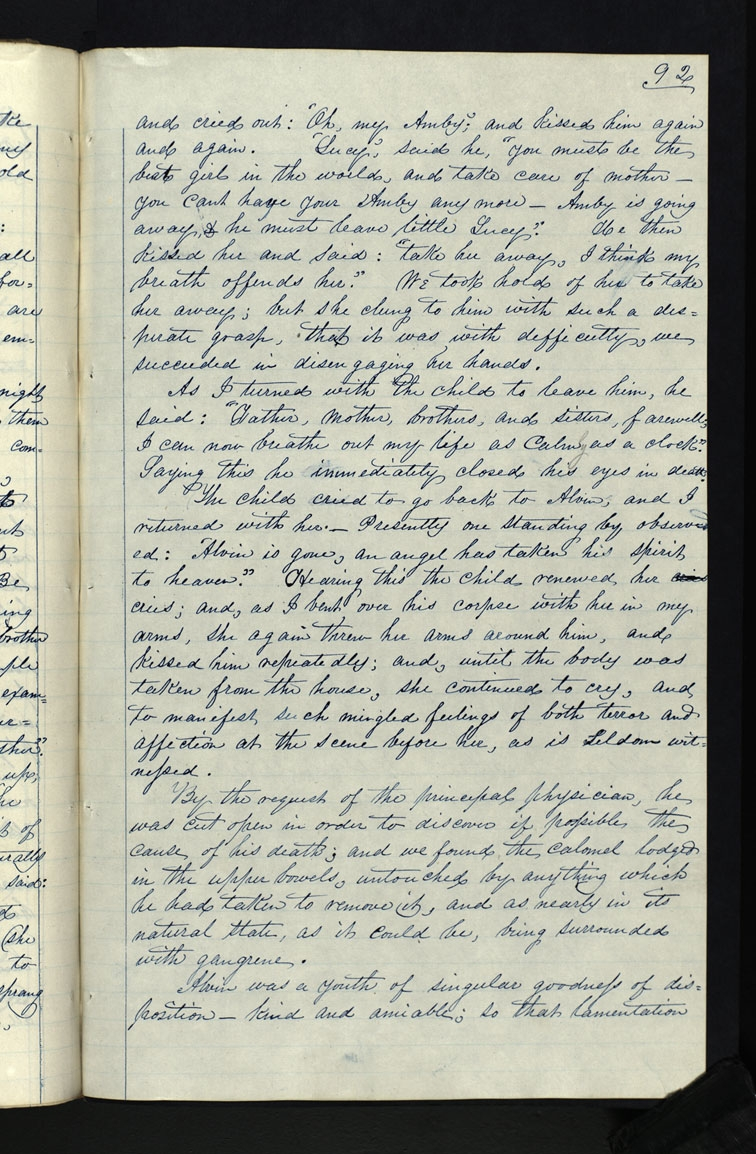 92
and cried out: "Oh, my Amby", and kissed him again
and again. "Lucy", said he, "you must be the
best girl in the world, and take care of mother—
you cant have your Amby any more— Amby is going
away, & he must leave little Lucy." He then
kissed her and said: "take her away, I think my
breath offends her." We took hold of her to take
her away; but she clung to him with such a des=
perate grasp, that it was with difficulty, we
succeeded in disengaging her hands.
As I turned with the child to leave him, he
said: "Father, Mother, brothers, and sisters, farewell,
I can now breathe out my life as calmly as a clock."
Saying this he immediately closed his eyes in death.
The child cried to go back to Alvin, and I
returned with her.— Presently one standing by observ
ed: "Alvin is gone, an angel has taken his spirit
to heaven." Hearing this the child renewed her
cries; and, as I bent over his corpse with her in my
arms, she again threw her arms around him, and
kissed him repeatedly; and, until the body was
taken from the house, she continued to cry, and
to manifest such mingled feelings of both terror and
affection at the scene before her, as is seldom wit=
nessed.
By the request of the principal physician, he
was cut open in order to discover if possible the
cause of his death; and we found the calomel lodged
in the upper bowels, untouched by anything which
he had taken to remove it, and as nearly in its
natural state, as it could be, being surrounded
with gangrene.
Alvin was a youth of singular goodness of dis=
position— kind and amiable; so that lamentation
all
for=
are
em=
night
them
com=
Be
ing
brother
ple
exam=
up,
he
t of
urally
said:
(she
to
sprang